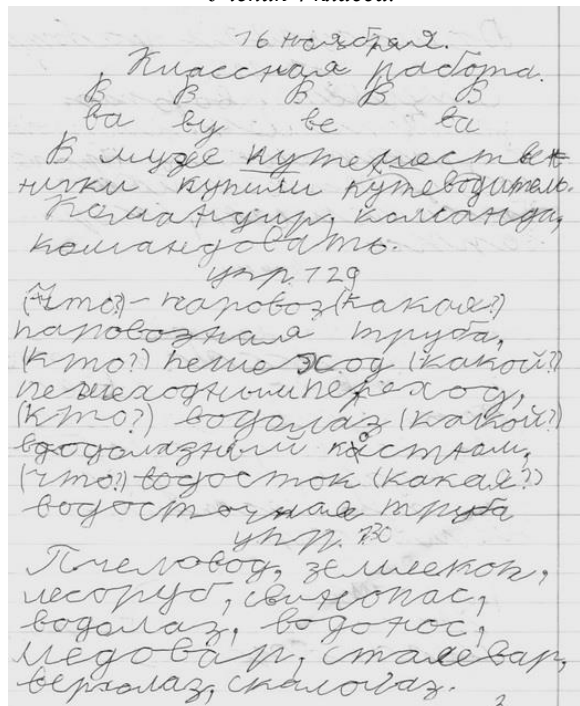 16 ноября.
Классная работа.
В В В В В
ва ву ве ва
В музее путешествен
ники купили путеводитель.
Командир, команда,
командовать.
упр. 129
(Что?) - паровоз (какая?)
паровозная труба,
(кто?) пешеход (какой?)
пешеходный переход,
(кто?) водолаз (какой?)
вдодолазный костюм,
(что?) водосток (какая?)
водосточная труба
упр. 130
Пчеловод, землекоп,
лесоруб, свинопас,
водолаз, водонос,
медовар, сталевар,
верхолаз, скалолаз.